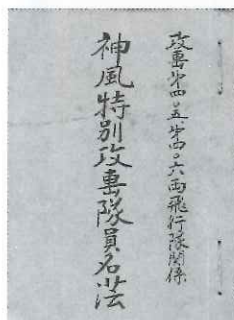 攻撃第四〇五第四〇六両飛行隊関係
神風特別攻撃隊員名簿